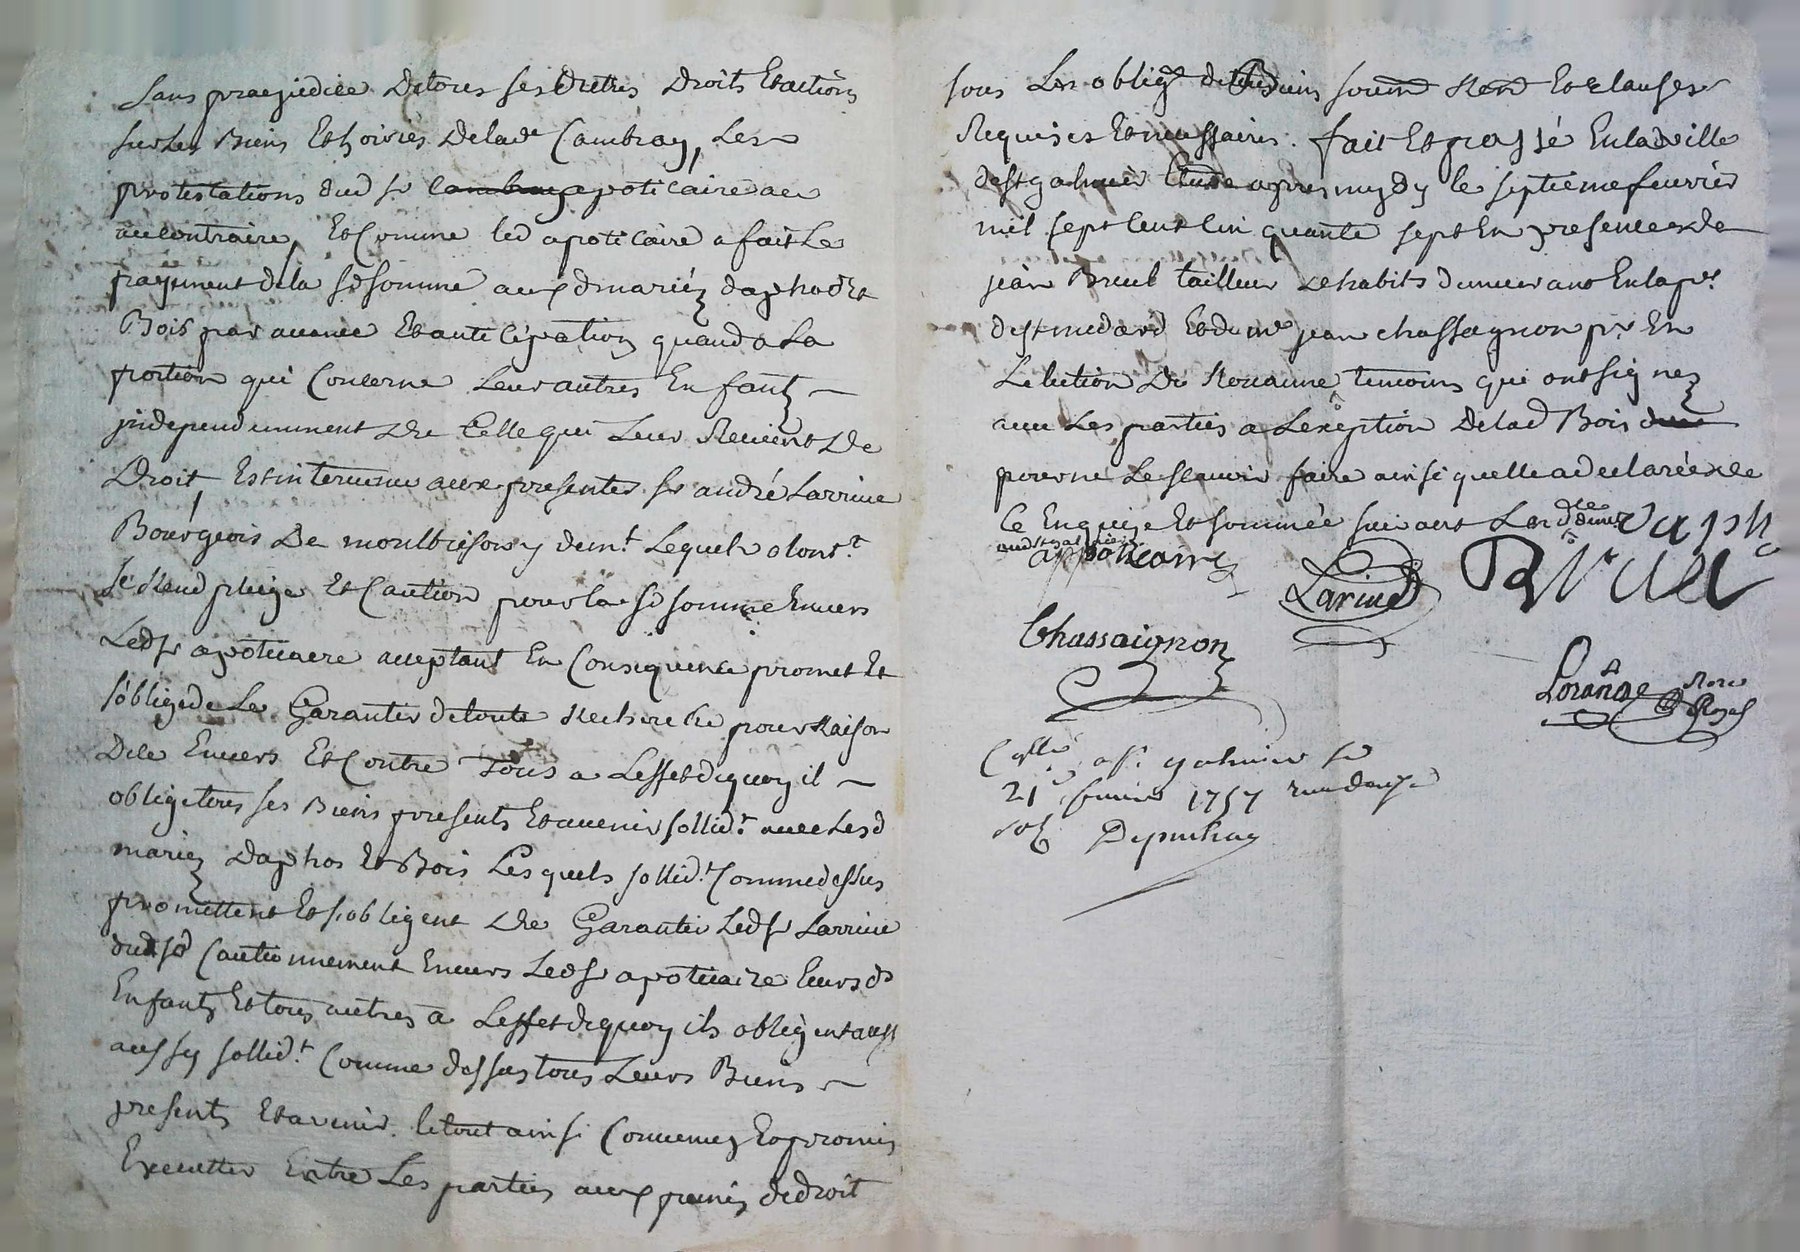 Sans praejudice de tous ses autres droits et actions
sur les biens et hoiries de lade Cambray, les
protestations dud sr cambray apoticaire au
au contraire, et comme led apoticaire a fait le
payement de la sd somme aux d mariéz daphos et
Bois par avance et anticipation quand a la
portion qui concerne leur autres enfantz
independemment de celle qui leur revient de
droit, est intervenu aux presentes sr andré Larrive
Bourgeois de montbrison y demt lequel volontt
se rend pleige et caution pour la sd somme envers
led sr apoticaire acceptant en consequence promet et
s'oblige de le garantir de toute recherche pour raison
dice envers et contre tous a leffet dequoy il
oblige tous ses biens presents et avenir sollidt avec lesd
mariez daphos et Bois lesquels sollidt comme dessus
promettent et s'obligent de garantir led sr Larrive
dud sd cautionnement envers led sr apoticaire leurs ds
enfantz et tous autres a leffet dequoy ils obligent aussy
aussy sollidt comme dessus tous leurs biens
presents et avenir. le tout ainsi convenu et promis
executter entre les parties aux peines de droit
sous les obligs de biens soumd rend et clauses
requises et necessaires. fait et passé en lad ville
de st galmier Etude apres mydy le septieme fevrier
mil sept cent cinquante sept en presence de
jean Breul tailleur de habits demeurant en la psse
de st medard et de me jean chassagnon pr en
Lelection de Roanne temoins qui ont signez
avec les parties a l'exeption de lad Bois
pour ne le scavoir faire ainsi quelle a declarée de
ce enquize et sommée suivant les dtes
apoticaire
Larrive
Breul
Chassaignon
Lorange Nore Royal
Collé a st galmier le
21e fevrier 1757